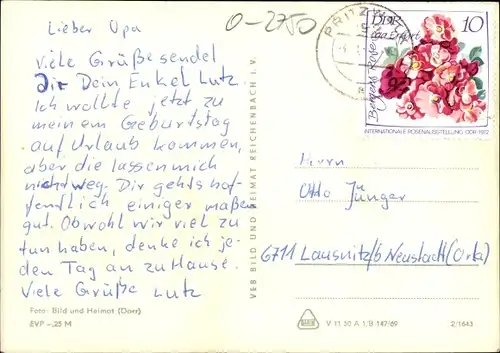 Lieber Opa
Viele Grüße sendet
Dir Dein Enkel Lutz
Ich wollte jetzt zu
meinem Geburtstag
auf Urlaub kommen,
aber die lassen mich
nicht weg. Dir gehts hof-
fentlich einiger maßen
gut. Obwohl wir viel zu
tun haben, denke ich je-
den Tag an zu Hause.
Viele Grüße Lutz
Foto: Bild und Heimat (Dorr)
EVP –,25 M
0-2750
VEB BILD UND HEIMAT REICHENBACH I. V.
PRITZ
DDR
10
iga Erfurt
Bergers Rose
INTERNATIONALE ROSENAUSSTELLUNG DDR 1972
Herrn
Otto Jünger
6711 Lausnitz/b Neustadt (Orla)
V 11 50 A 1/B 147/69
2/1643